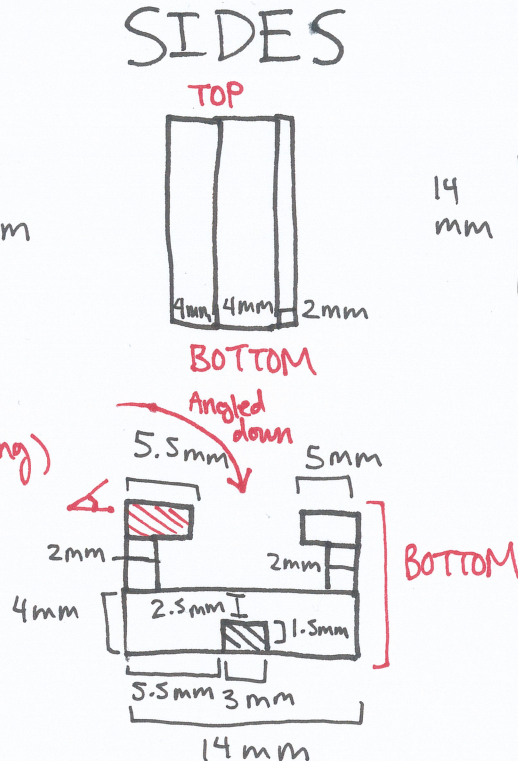 SIDES
TOP
14
mm
m
4mm 4mm 2mm
BOTTOM
Angled
down
ng)
5.5mm
5mm
2mm
2mm
BOTTOM
4mm
2.5mm
1.5mm
5.5mm 3mm
14mm